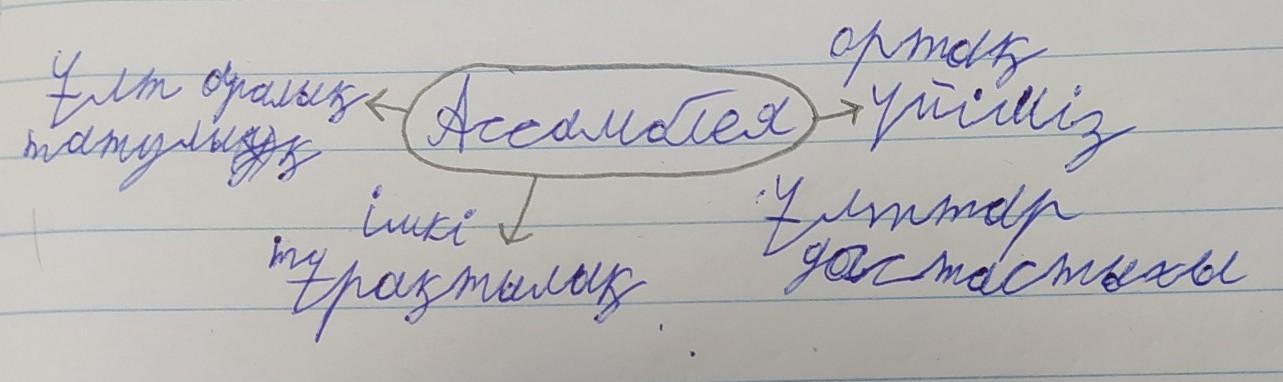 ортақ
Ұлт аралық Ассамблея үйіміз
татулық
ішкі Ұлттар
тұрақтылық достастығы